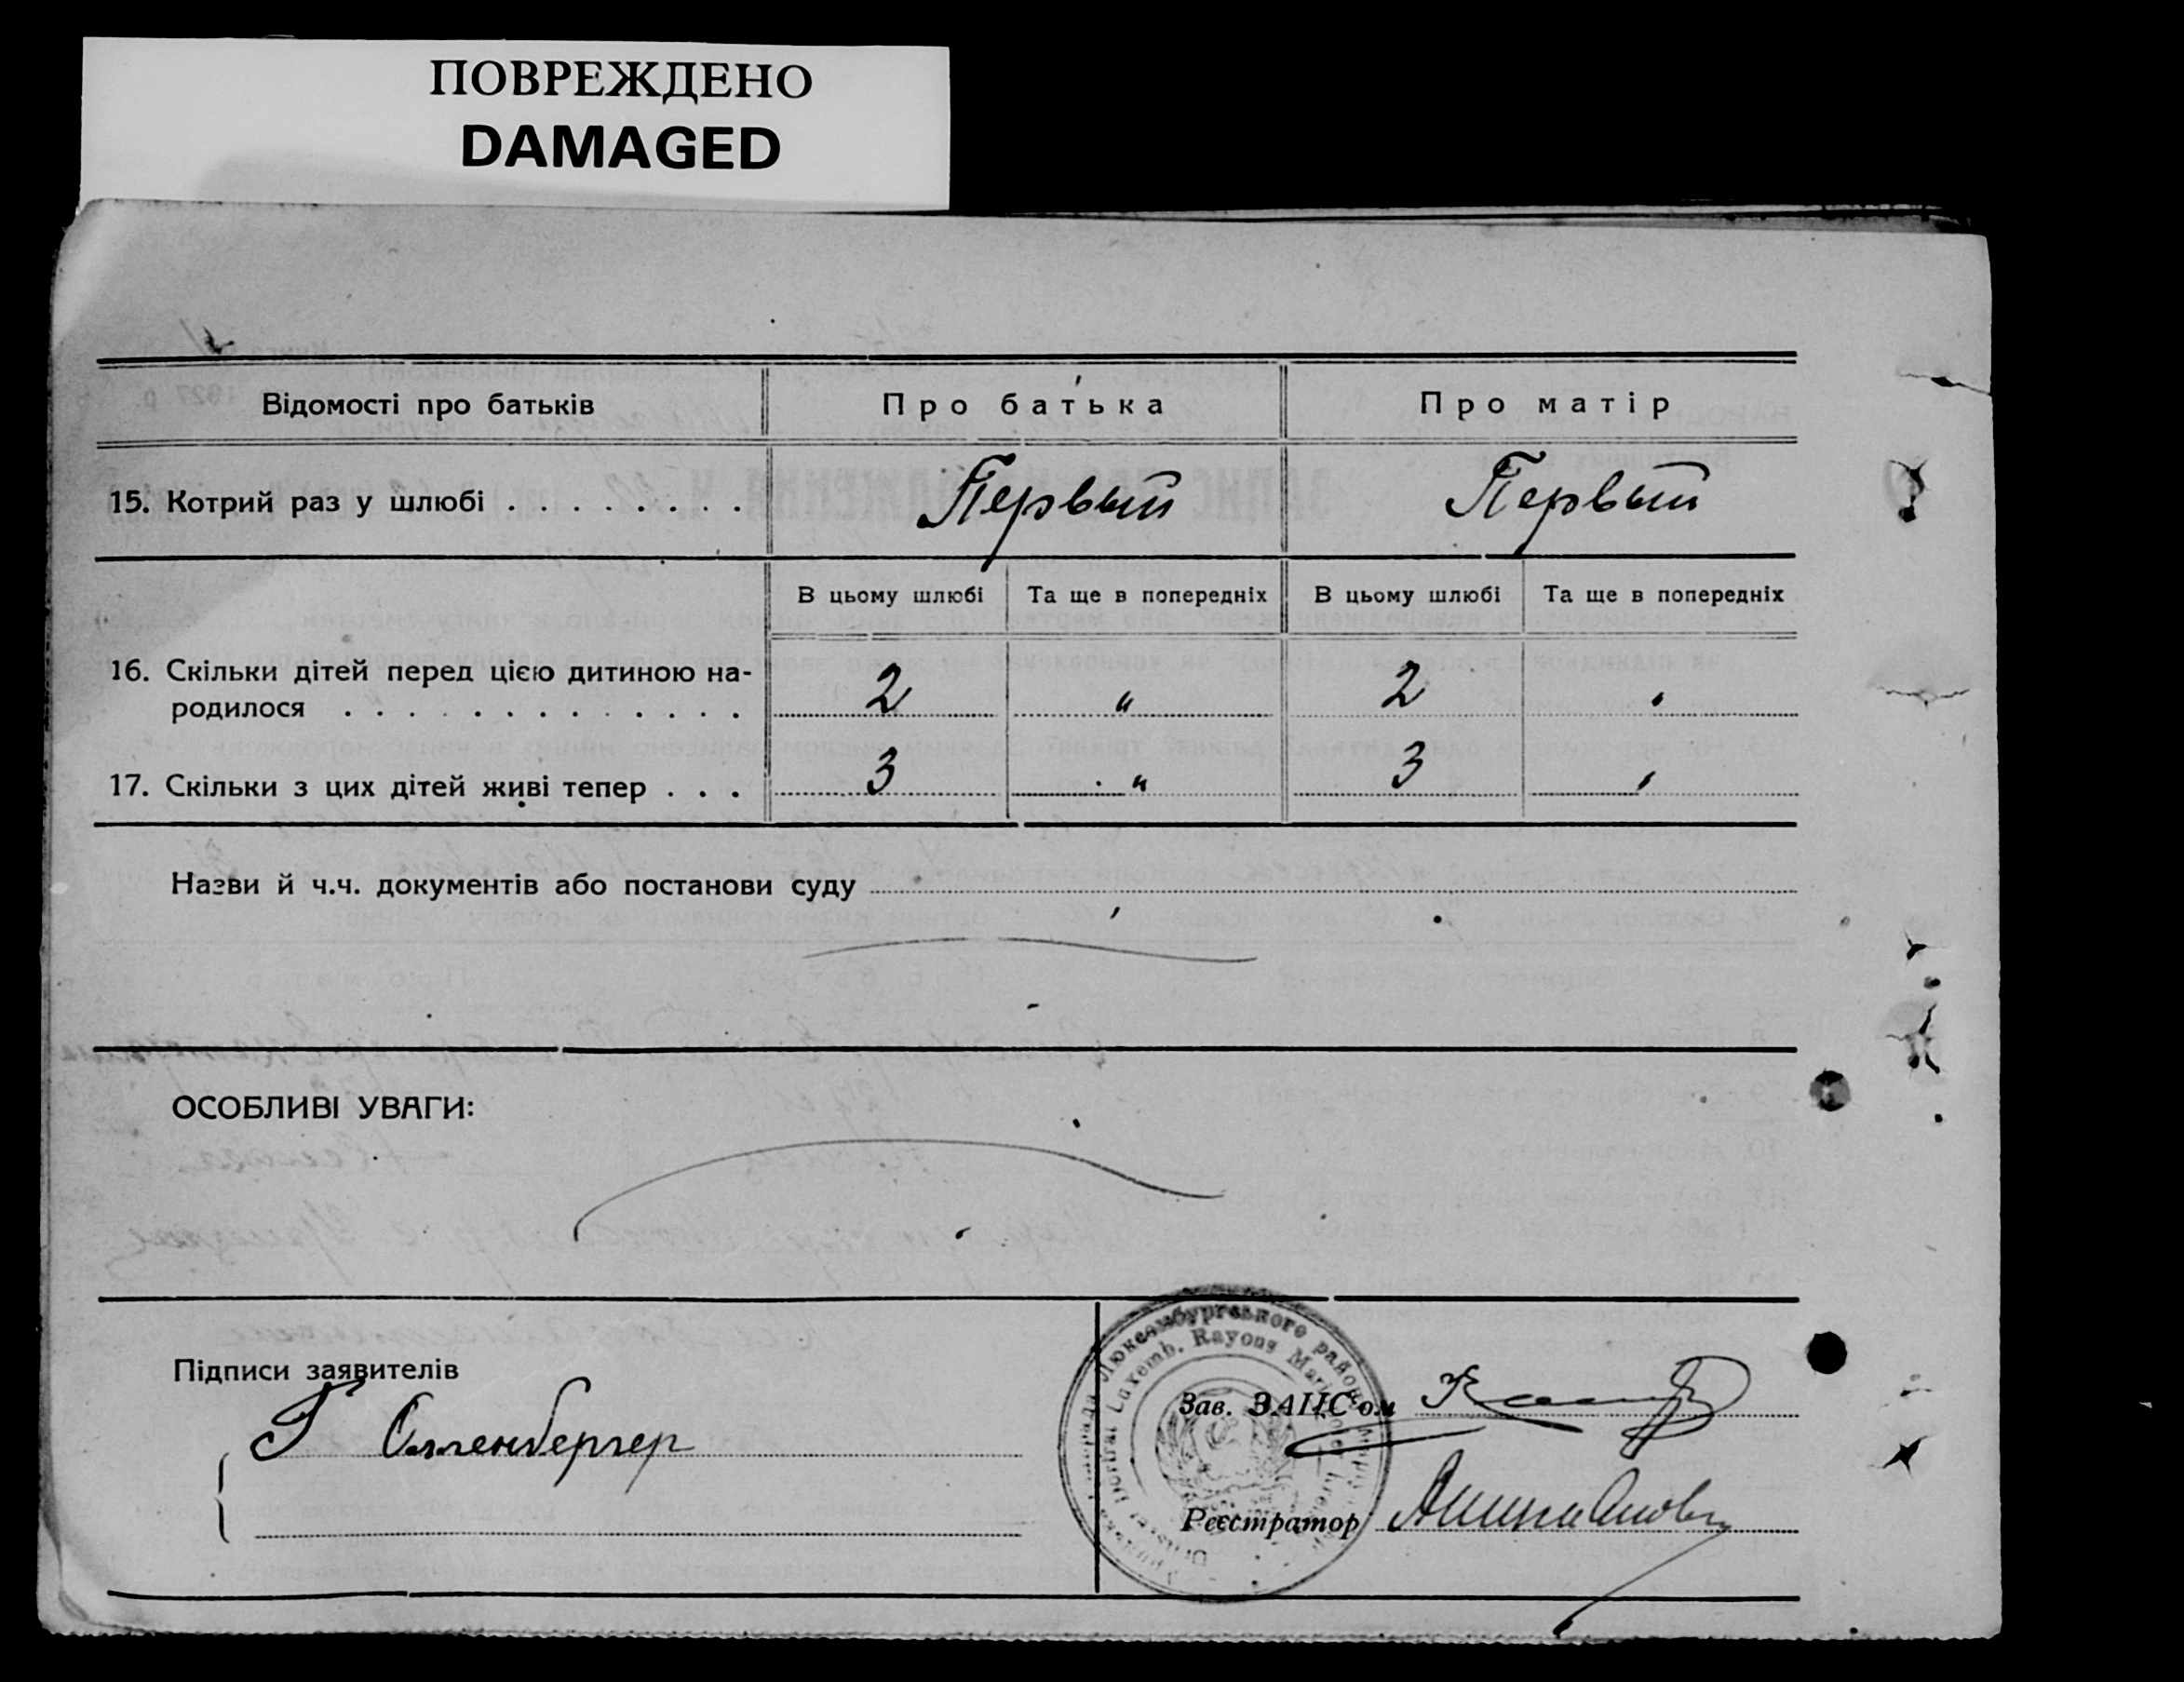 ПОВРЕЖДЕНО
DAMAGED
Відомості про батьків
Про батька
Про матір
15. Котрий раз у шлюбі . . . . . . . .
Первый
Первый
В цьому шлюбі
Та ще в попередніх
В цьому шлюбі
Та ще в попередніх
16. Скільки дітей перед цією дитиною на-
родилося . . . . . . . . . . . . .
2
"
2
"
17. Скільки з цих дітей живі тепер . . .
3
"
3
"
Назви й ч.ч. документів або постанови суду
ОСОБЛИВІ УВАГИ:
Підписи заявителів
Г
Зав. ЗАГС'ом
Реєстратор
Люксембургського району
Luxemb. Rayons